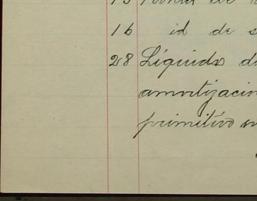 16 id de s
28 Líquido d
amortizacio
primitivo